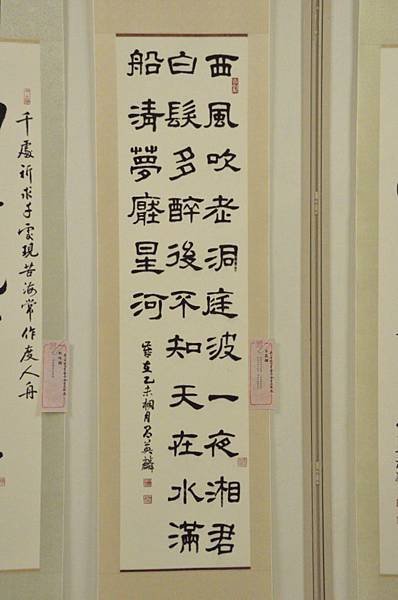 西風吹老洞庭波一夜湘君
白髮多醉後不知天在水滿
船清夢壓星河
歲在乙未
千處祈求千處現苦海常作度人舟